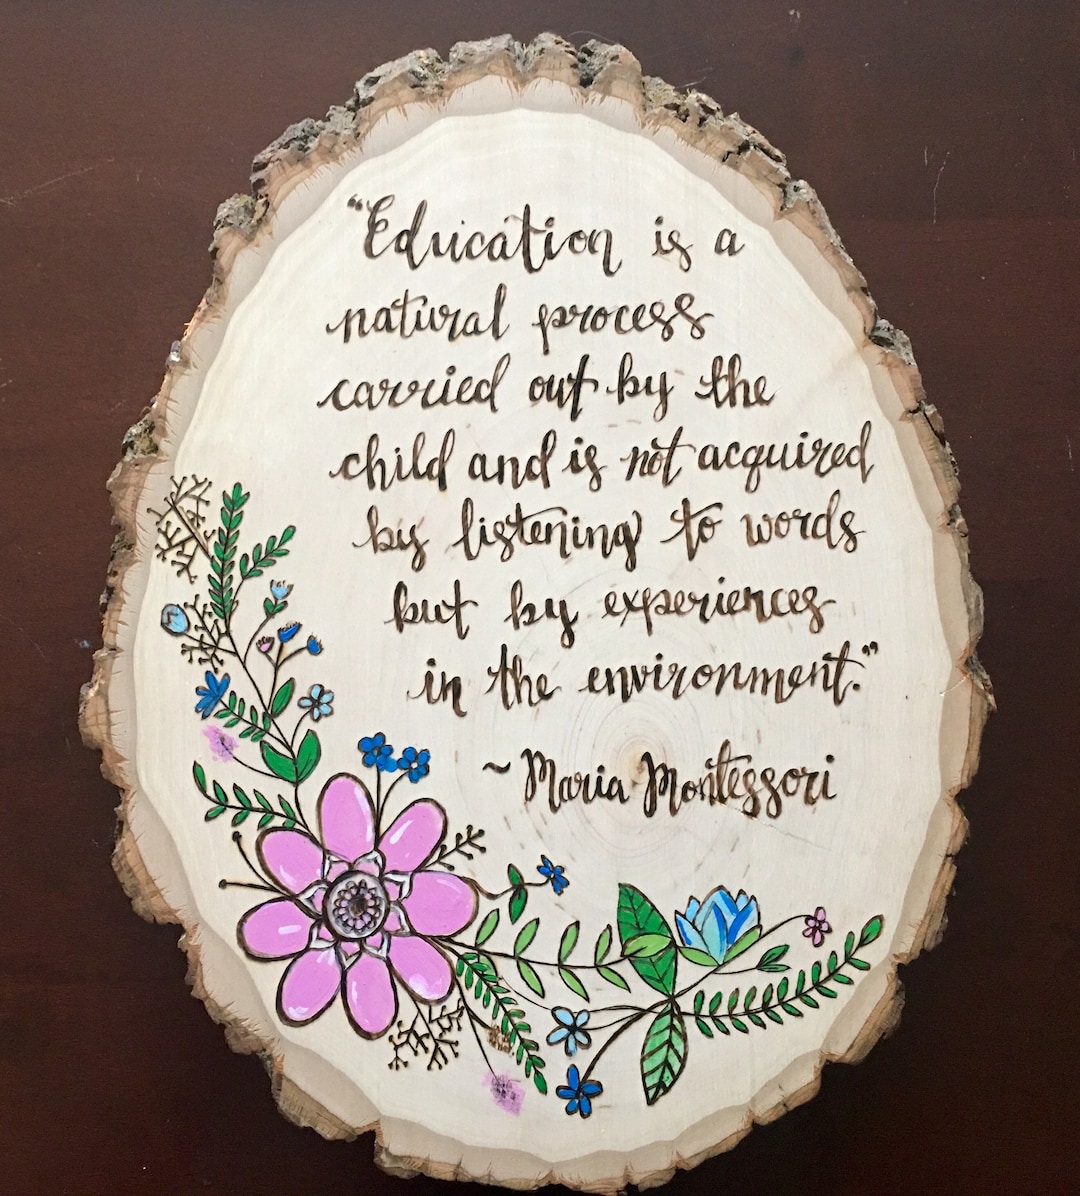 “Education is a
natural process
carried out by the
child and is not acquired
by listening to words
but by experiences
in the environment.”
~ Maria Montessori